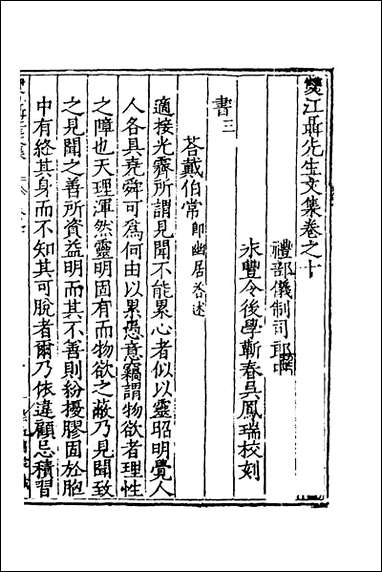 雙江聶先生文集卷之十
禮部儀制司郎中
永豐令後學蘄春吳鳳瑞校刻
書三
荅戴伯常即幽居荅述
適接光霽所謂見聞不能累心者似以靈昭明覺人
人各具堯舜可爲何由以累愚意竊謂物欲者理性
之障也天理渾然靈明固有而物欲之蔽乃見聞致
之見聞之善所資益明而其不善則紛擾膠固於胞
中有終其身而不知其可脫者爾乃依違顧忌積習